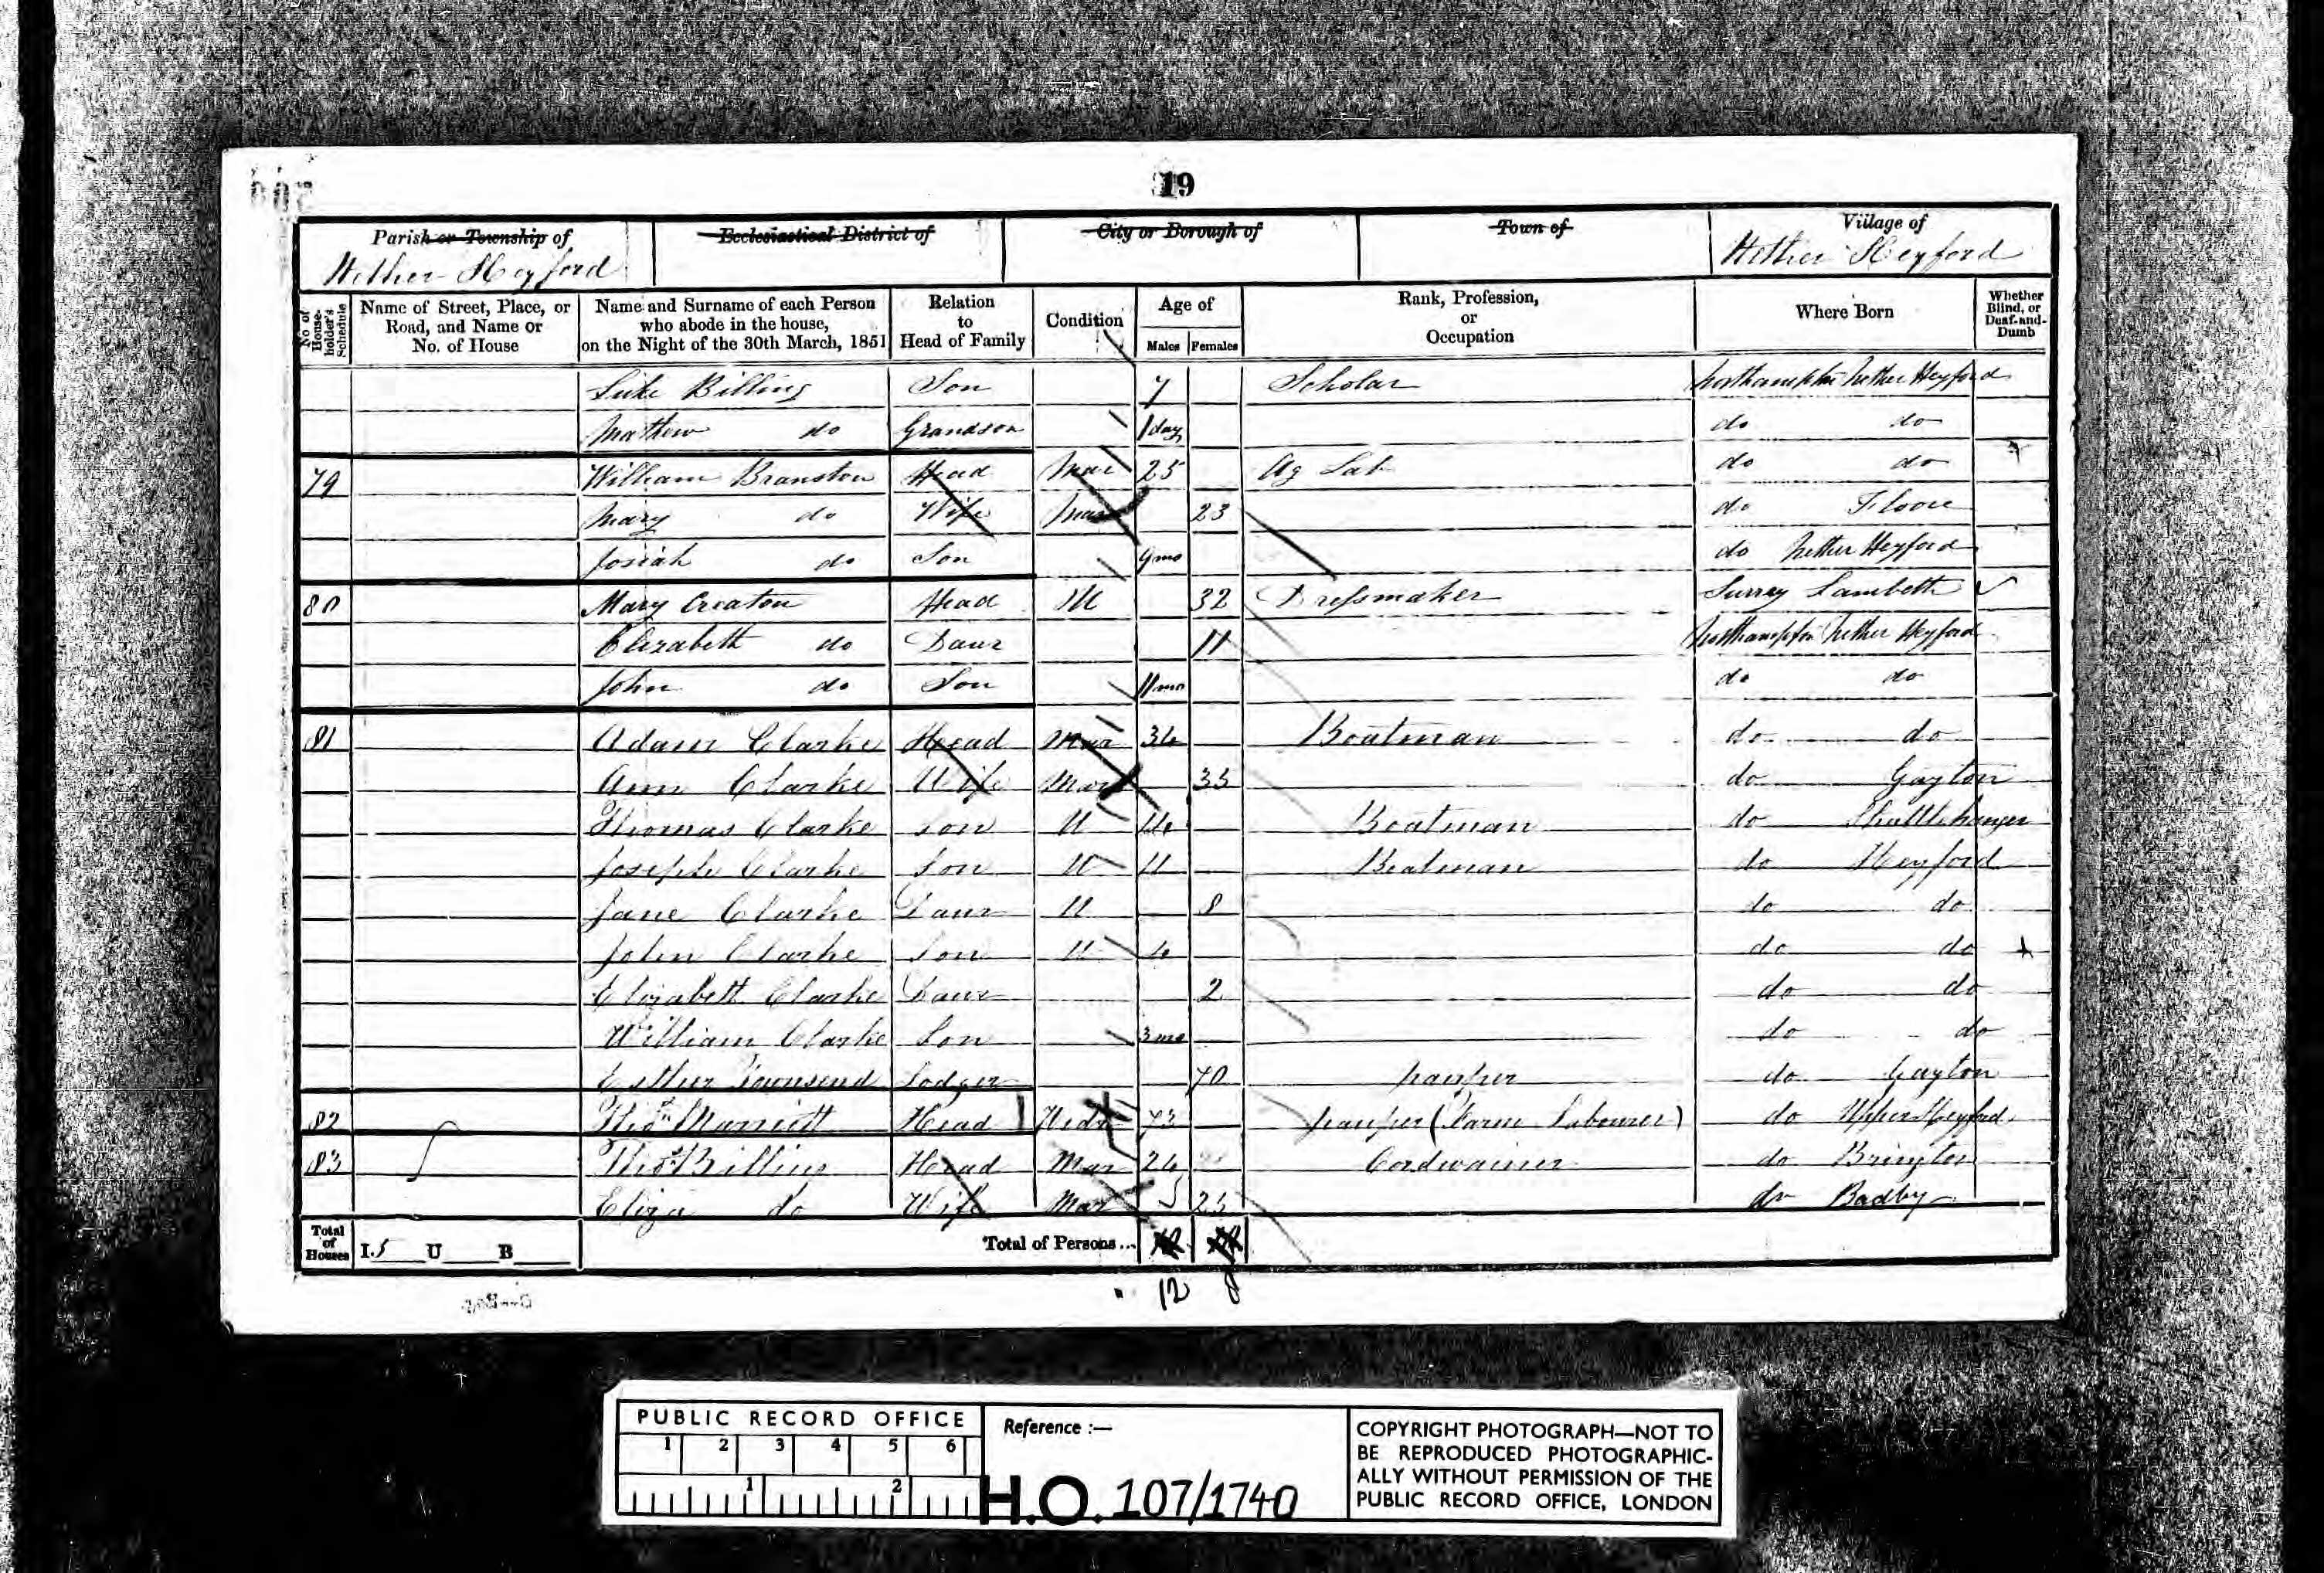 19
Parish or Township of Ecclesiastical District of City or Borough of Town of Village of
Nether Heyford Nether Heyford
No. of House-holder's Schedule Name of Street, Place, or Road, and Name or No. of House Name and Surname of each Person who abode in the house, on the Night of the 30th March, 1851 Relation to Head of Family Condition Age of Males Females Rank, Profession, or Occupation Where Born Whether Blind, or Deaf-and-Dumb
Luke Billing Son 7 Scholar Northampton Nether Heyford
Mathew do Grandson 1 day do do
79 William Branston Head Mar 25 Ag Lab do do
Mary do Wife Mar 23 do Floore
Josiah do Son 9 mo do Nether Heyford
80 Mary Creaton Head M 32 Dressmaker Surrey Lambeth
Elizabeth do Daur 11 Northampton Nether Heyford
John do Son 11 mo do do
81 Adam Clarke Head Mar 34 Boatman do do
Ann Clarke Wife Mar 33 do Gayton
Thomas Clarke Son U 14 Boatman do Shuttlehanger
Joseph Clarke Son U 11 Boatman do Heyford
Jane Clarke Daur U 8 do do
John Clarke Son U 4 do do
Elizabeth Clarke Daur 2 do do
William Clarke Son 3 mo do do
Esther Townsend Lodger 70 pauper do Gayton
82 Thos Marriott Head Widr 73 pauper (Farm Labourer) do Upper Heyford
83 Thos Billing Head Mar 24 Cordwainer do Brington
Eliza do Wife Mar 23 do Badby
Total of Houses I 5 U B Total of Persons...
12 8
PUBLIC RECORD OFFICE
1 2 3 4 5 6
1 2
Reference :—
H.O. 107/1740
COPYRIGHT PHOTOGRAPH—NOT TO
BE REPRODUCED PHOTOGRAPHIC-
ALLY WITHOUT PERMISSION OF THE
PUBLIC RECORD OFFICE, LONDON